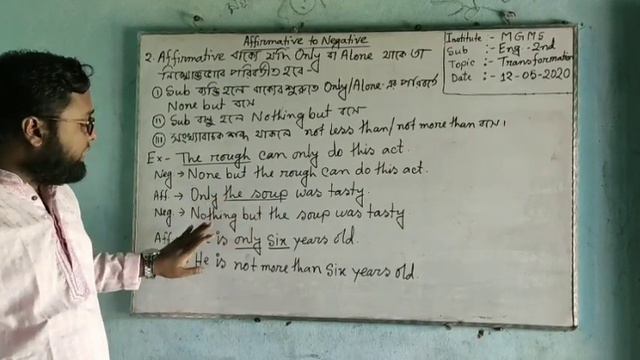 Affirmative to Negative
Institute :- MGMS
Sub :- Eng-2nd
Topic :- Transformation
Date :- 12-05-2020
2. Affirmative বাক্যে যদি Only বা Alone থাকে তা
নিম্নোক্তভাবে পরিবর্তীত হবে
(i) Sub ব্যক্তি হলে বাক্যের শুরুতে Only/Alone এর পরিবর্তে
None but বসে
(ii) Sub বস্তু হলে Nothing but বসে
(iii) সংখ্যাবাচক শব্দ থাকলে not less than/not more than বসে।
Ex - The rough can only do this act.
Neg → None but the rough can do this act.
Aff. → Only the soup was tasty.
Neg → Nothing but the soup was tasty
Aff is only six years old.
He is not more than six years old